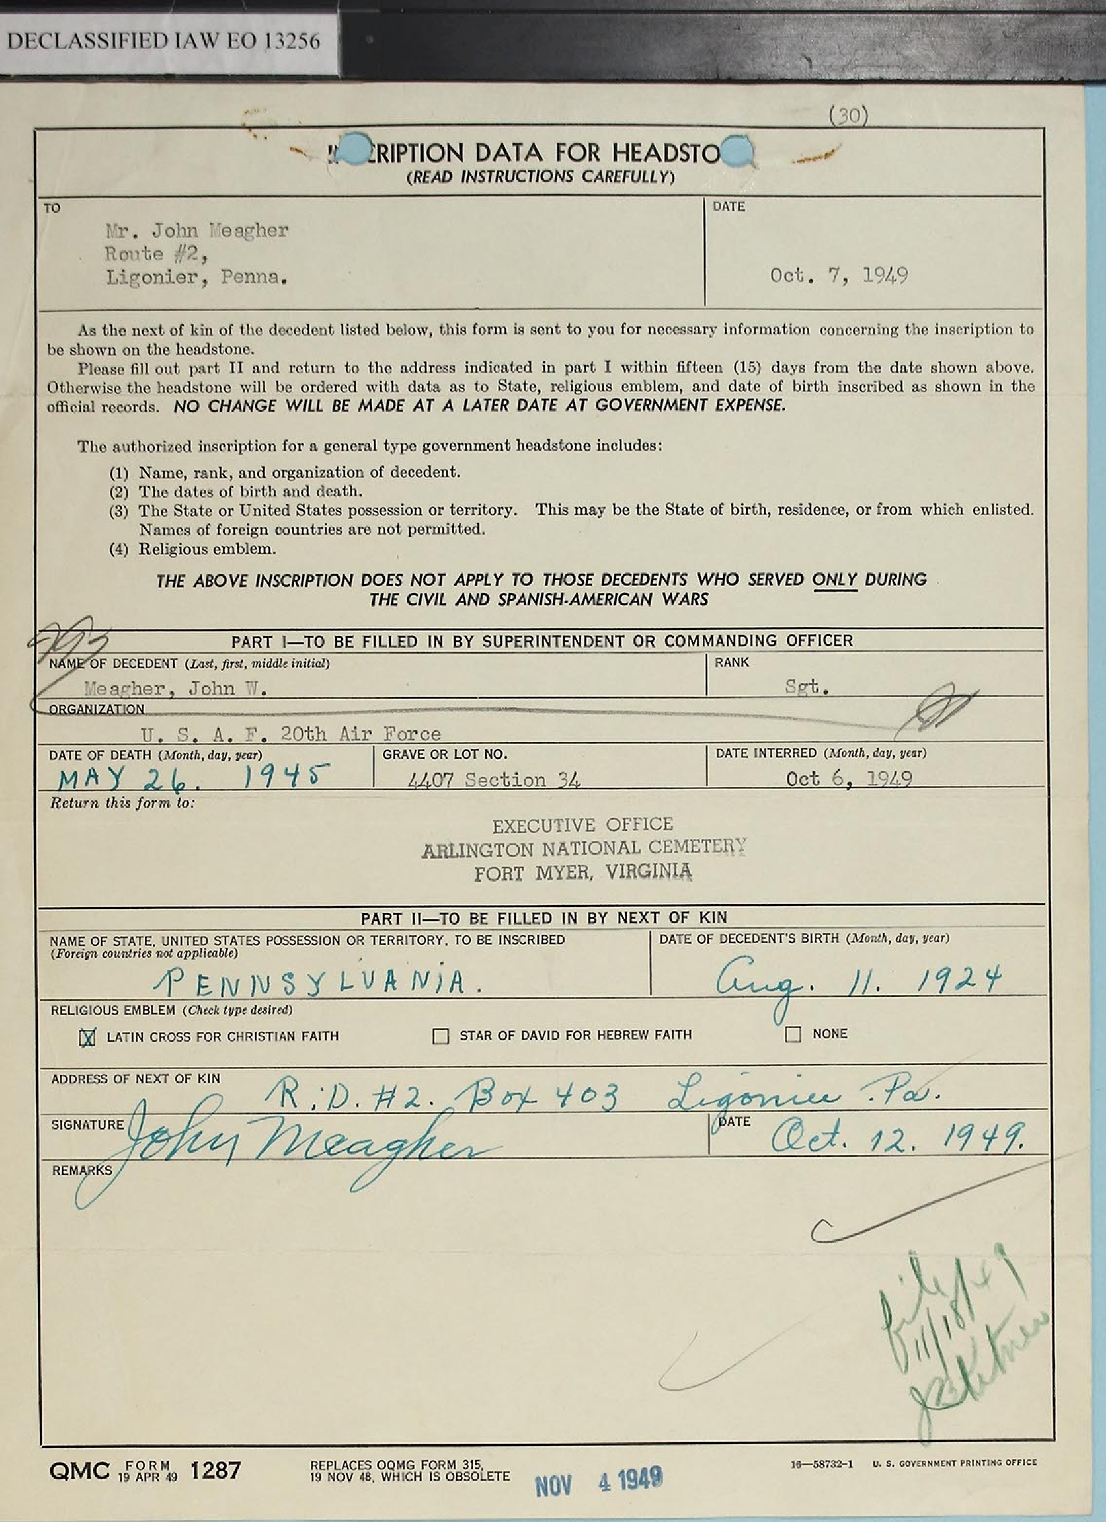 DECLASSIFIED IAW EO 13256
(30)
RIPTION DATA FOR HEADSTO
(READ INSTRUCTIONS CAREFULLY)
TO
DATE
Mr. John Meagher
Route #2,
Ligonier, Penna.
Oct. 7, 1949
As the next of kin of the decedent listed below, this form is sent to you for necessary information concerning the inscription to
be shown on the headstone.
Please fill out part II and return to the address indicated in part I within fifteen (15) days from the date shown above.
Otherwise the headstone will be ordered with data as to State, religious emblem, and date of birth inscribed as shown in the
official records. NO CHANGE WILL BE MADE AT A LATER DATE AT GOVERNMENT EXPENSE.
The authorized inscription for a general type government headstone includes:
(1) Name, rank, and organization of decedent.
(2) The dates of birth and death.
(3) The State or United States possession or territory. This may be the State of birth, residence, or from which enlisted.
Names of foreign countries are not permitted.
(4) Religious emblem.
THE ABOVE INSCRIPTION DOES NOT APPLY TO THOSE DECEDENTS WHO SERVED ONLY DURING
THE CIVIL AND SPANISH-AMERICAN WARS
PART I—TO BE FILLED IN BY SUPERINTENDENT OR COMMANDING OFFICER
NAME OF DECEDENT (Last, first, middle initial)
RANK
Meagher, John W.
Sgt.
ORGANIZATION
U. S. A. F. 20th Air Force
DATE OF DEATH (Month, day, year)
GRAVE OR LOT NO.
DATE INTERRED (Month, day, year)
MAY 26. 1945
4407 Section 34
Oct 6, 1949
Return this form to:
EXECUTIVE OFFICE
ARLINGTON NATIONAL CEMETERY
FORT MYER, VIRGINIA
PART II—TO BE FILLED IN BY NEXT OF KIN
NAME OF STATE, UNITED STATES POSSESSION OR TERRITORY, TO BE INSCRIBED
(Foreign countries not applicable)
DATE OF DECEDENT'S BIRTH (Month, day, year)
PENNSYLVANIA.
Aug. 11. 1924
RELIGIOUS EMBLEM (Check type desired)
X LATIN CROSS FOR CHRISTIAN FAITH
STAR OF DAVID FOR HEBREW FAITH
NONE
ADDRESS OF NEXT OF KIN
R.D. #2. Box 403 Ligonier .Pa.
SIGNATURE
John Meagher
DATE
Oct. 12. 1949.
REMARKS
file
11/18/49
QMC FORM 1287
19 APR 49
REPLACES OQMG FORM 315,
19 NOV 48, WHICH IS OBSOLETE
NOV 4 1949
16—58732-1 U. S. GOVERNMENT PRINTING OFFICE